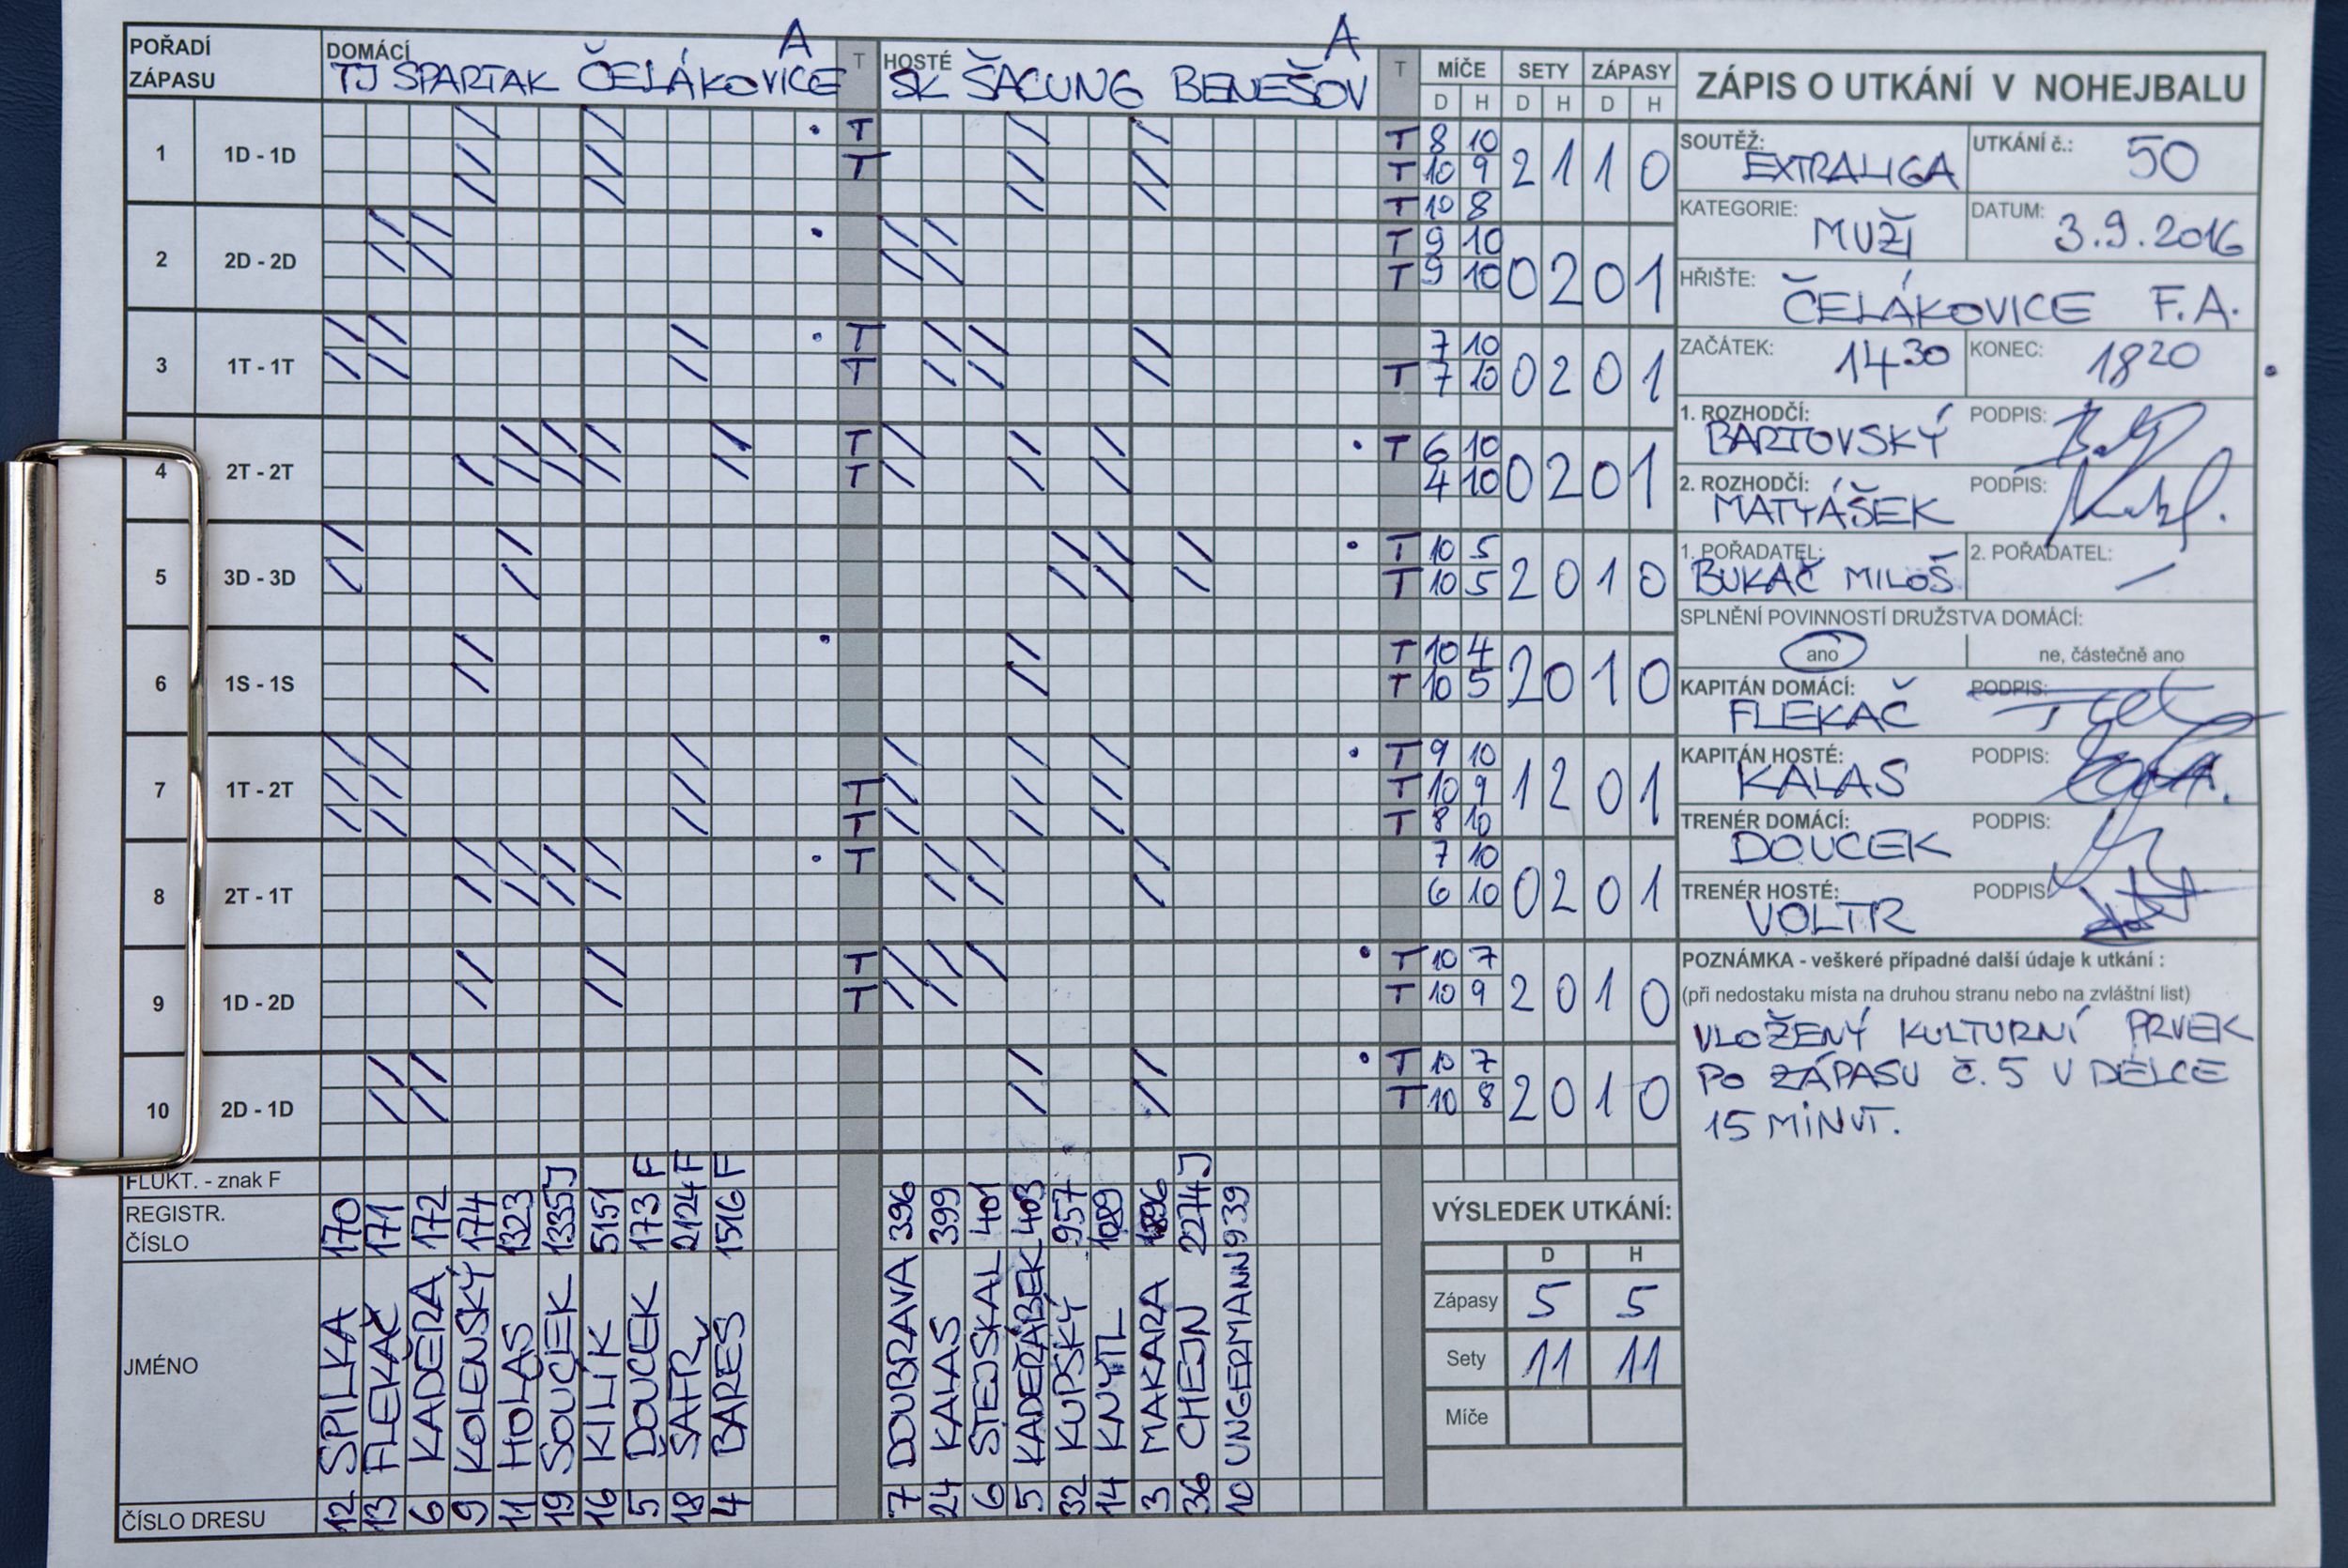 POŘADÍ ZÁPASU
DOMÁCÍ
TJ SPARTAK ČELÁKOVICE A
T
HOSTÉ
SK ŠACUNG BENEŠOV A
T
MÍČE SETY ZÁPASY
D H D H D H
1 1D - 1D T T T T T
8 10
10 9
10 8
2 1 1 0
2 2D - 2D T T
9 10
9 10
0 2 0 1
3 1T - 1T T T T
7 10
7 10
0 2 0 1
4 2T - 2T T T T
6 10
4 10
0 2 0 1
5 3D - 3D T T
10 5
10 5
2 0 1 0
6 1S - 1S T T
10 4
10 5
2 0 1 0
7 1T - 2T T T T T T
9 10
10 9
8 10
1 2 0 1
8 2T - 1T T
7 10
6 10
0 2 0 1
9 1D - 2D T T T T
10 7
10 9
2 0 1 0
10 2D - 1D T T
10 7
10 8
2 0 1 0
FLUKT. - znak F
REGISTR. ČÍSLO
JMÉNO
ČÍSLO DRESU
12 SPILKA 170
13 FLEKAČ 171
6 KADERA 172
9 KOLENSKÝ 174
11 HOLAS 1323
19 SOUCEK 1335 J
16 KILÍK 5151
5 DOUCEK 173 F
18 SAFR 2124 F
4 BARES 1516 F
7 DOUBRAVA 396
24 KALAS 399
6 STEJSKAL 401
5 KADEŘÁBEK 403
32 KUPSKÝ 957
14 KNYTL 1089
3 MAKARA
36 CHEJN 2274 J
10 UNGERMANN 939
VÝSLEDEK UTKÁNÍ:
D H
Zápasy 5 5
Sety 11 11
Míče
ZÁPIS O UTKÁNÍ V NOHEJBALU
SOUTĚŽ: EXTRALIGA
UTKÁNÍ č.: 50
KATEGORIE: MUŽI
DATUM: 3.9.2016
HŘIŠTĚ: ČELÁKOVICE F.A.
ZAČÁTEK: 14 30
KONEC: 18 20
1. ROZHODČÍ: BARTOVSKÝ
PODPIS:
2. ROZHODČÍ: MATYÁŠEK
PODPIS:
1. POŘADATEL: BUKAČ MILOŠ
2. POŘADATEL: —
SPLNĚNÍ POVINNOSTÍ DRUŽSTVA DOMÁCÍ:
ano
ne, částečně ano
KAPITÁN DOMÁCÍ: FLEKAČ
PODPIS:
KAPITÁN HOSTÉ: KALAS
PODPIS:
TRENÉR DOMÁCÍ: DOUCEK
PODPIS:
TRENÉR HOSTÉ: VOLTR
PODPIS:
POZNÁMKA - veškeré případné další údaje k utkání :
(při nedostaku místa na druhou stranu nebo na zvláštní list)
VLOŽENÝ KULTURNÍ PRVEK
PO ZÁPASU Č. 5 V DÉLCE
15 MINUT.